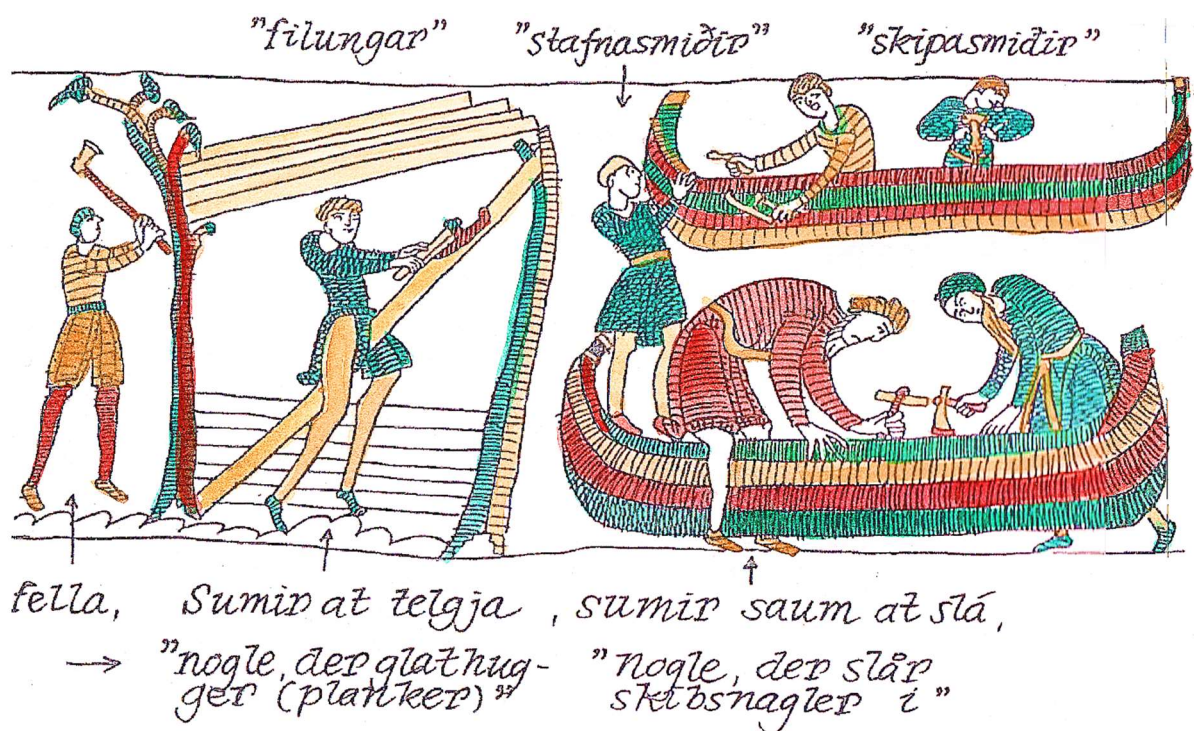 "filungar" "stafnasmiðir" "skipasmiðir"
fella, Sumir at telgja , sumir saum at slá,
→ "nogle, der glathug- "nogle, der slår
ger (planker)" skibsnagler i"